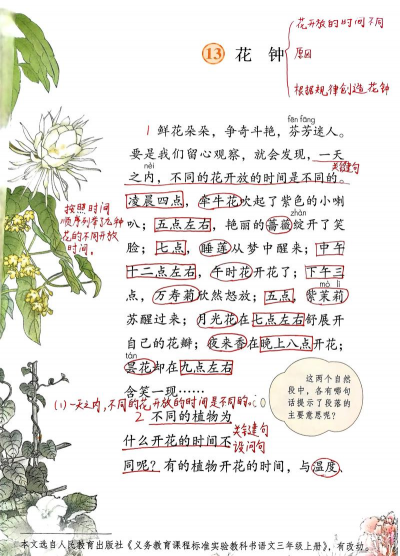 13 花 钟
花开放的时间不同
原因
根据规律创造花钟
fēn fāng
1 鲜花朵朵，争奇斗艳，芬芳迷人。
nèi
要是我们留心观察，就会发现，一天
关键句
之内，不同的花开放的时间是不同的。
凌晨四点，牵牛花吹起了紫色的小喇
zhán
叭；五点左右，艳丽的蔷薇绽开了笑
脸；七点，睡莲从梦中醒来；中午
十二点左右，午时花开花了；下午三
mò lì
点，万寿菊欣然怒放；五点，紫茉莉
苏醒过来；月光花在七点左右舒展开
自己的花瓣；夜来香在晚上八点开花；
tán
昙花却在九点左右
含笑一现……
按照时间
顺序列举了九种
花的不同开放
时间。
(1)一天之内，不同的花开放的时间是不同的。
2 不同的植物为
什么开花的时间不
关键句
设问句
同呢？有的植物开花的时间，与温度、
这两个自然
段中，各有哪句
话提示了段落的
主要意思呢？
本文选自人民教育出版社《义务教育课程标准实验教科书语文三年级上册》，有改动。